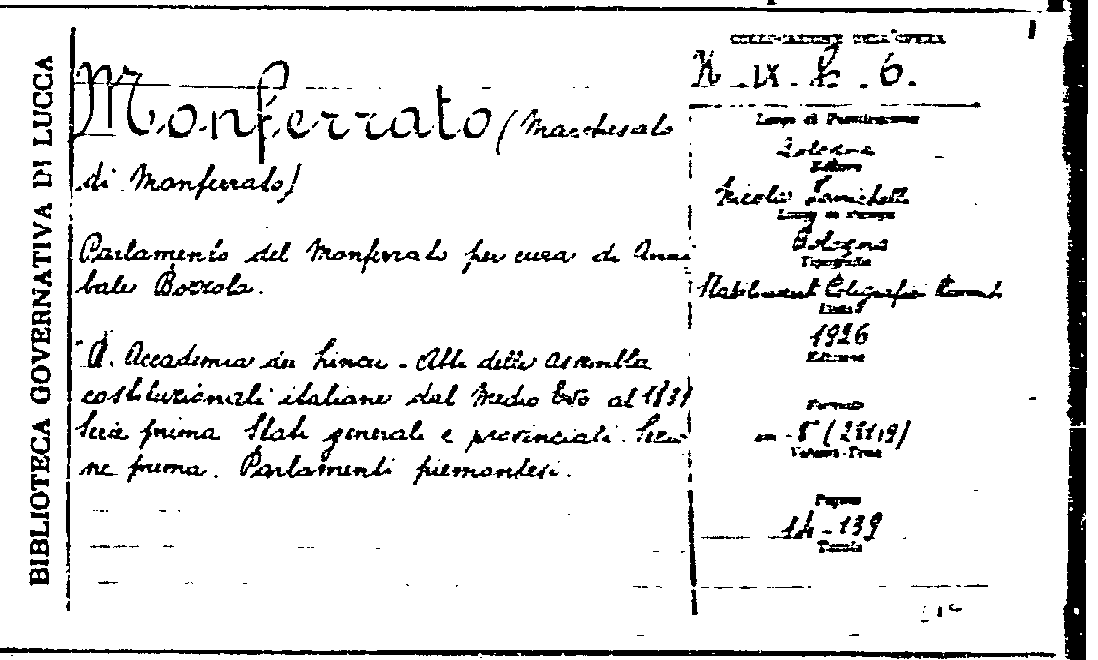 BIBLIOTECA GOVERNATIVA DI LUCCA
Monferrato (Marchesato
di Monferrato)
Parlamento del Monferrato per cura di Anni
bale Bozzola.
R. Accademia dei Lincei - Atti delle assemblee
costituzionali italiane dal Medio Evo al 1831
Serie prima Stati generali e provinciali. Sezio
ne prima. Parlamenti piemontesi.
COLLOCAZIONE DELL'OPERA
Luogo di Pubblicazione
Bologna
Editore
Nicola Zanichelli
Luogo di Stampa
Bologna
Tipografia
Data
1926
Edizione
Formato
in-8 
Volumi-Tomi
Pagine
14-139
Tavole